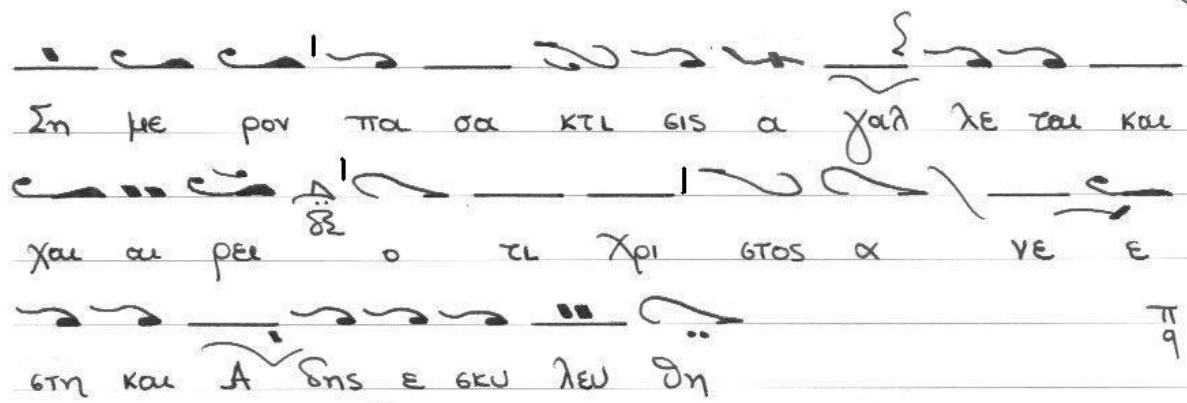 Ση με ρον πα σα κτι σις α γαλ λε ται και
χαι αι ρει ο τι Χρι στος α νε ε
στη και Α δης ε σκυ λευ θη